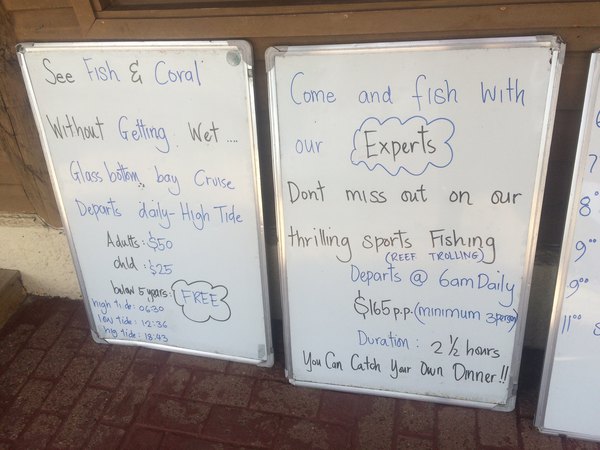 See Fish & Coral
Without Getting Wet ....
Glass bottom bay Cruise
Departs daily - High Tide
Adults : $50
child : $25
below 5 years : FREE
high tide : 06:30
low tide : 12:36
hig tide : 18:43
Come and fish with
our Experts
Dont miss out on our
thrilling sports Fishing
(REEF TROLLING)
Departs @ 6am Daily
$165 p.p. (minimum 3 person)
Duration : 2 ½ hours
You Can Catch Your Own Dinner!!
7
8
9
9
11